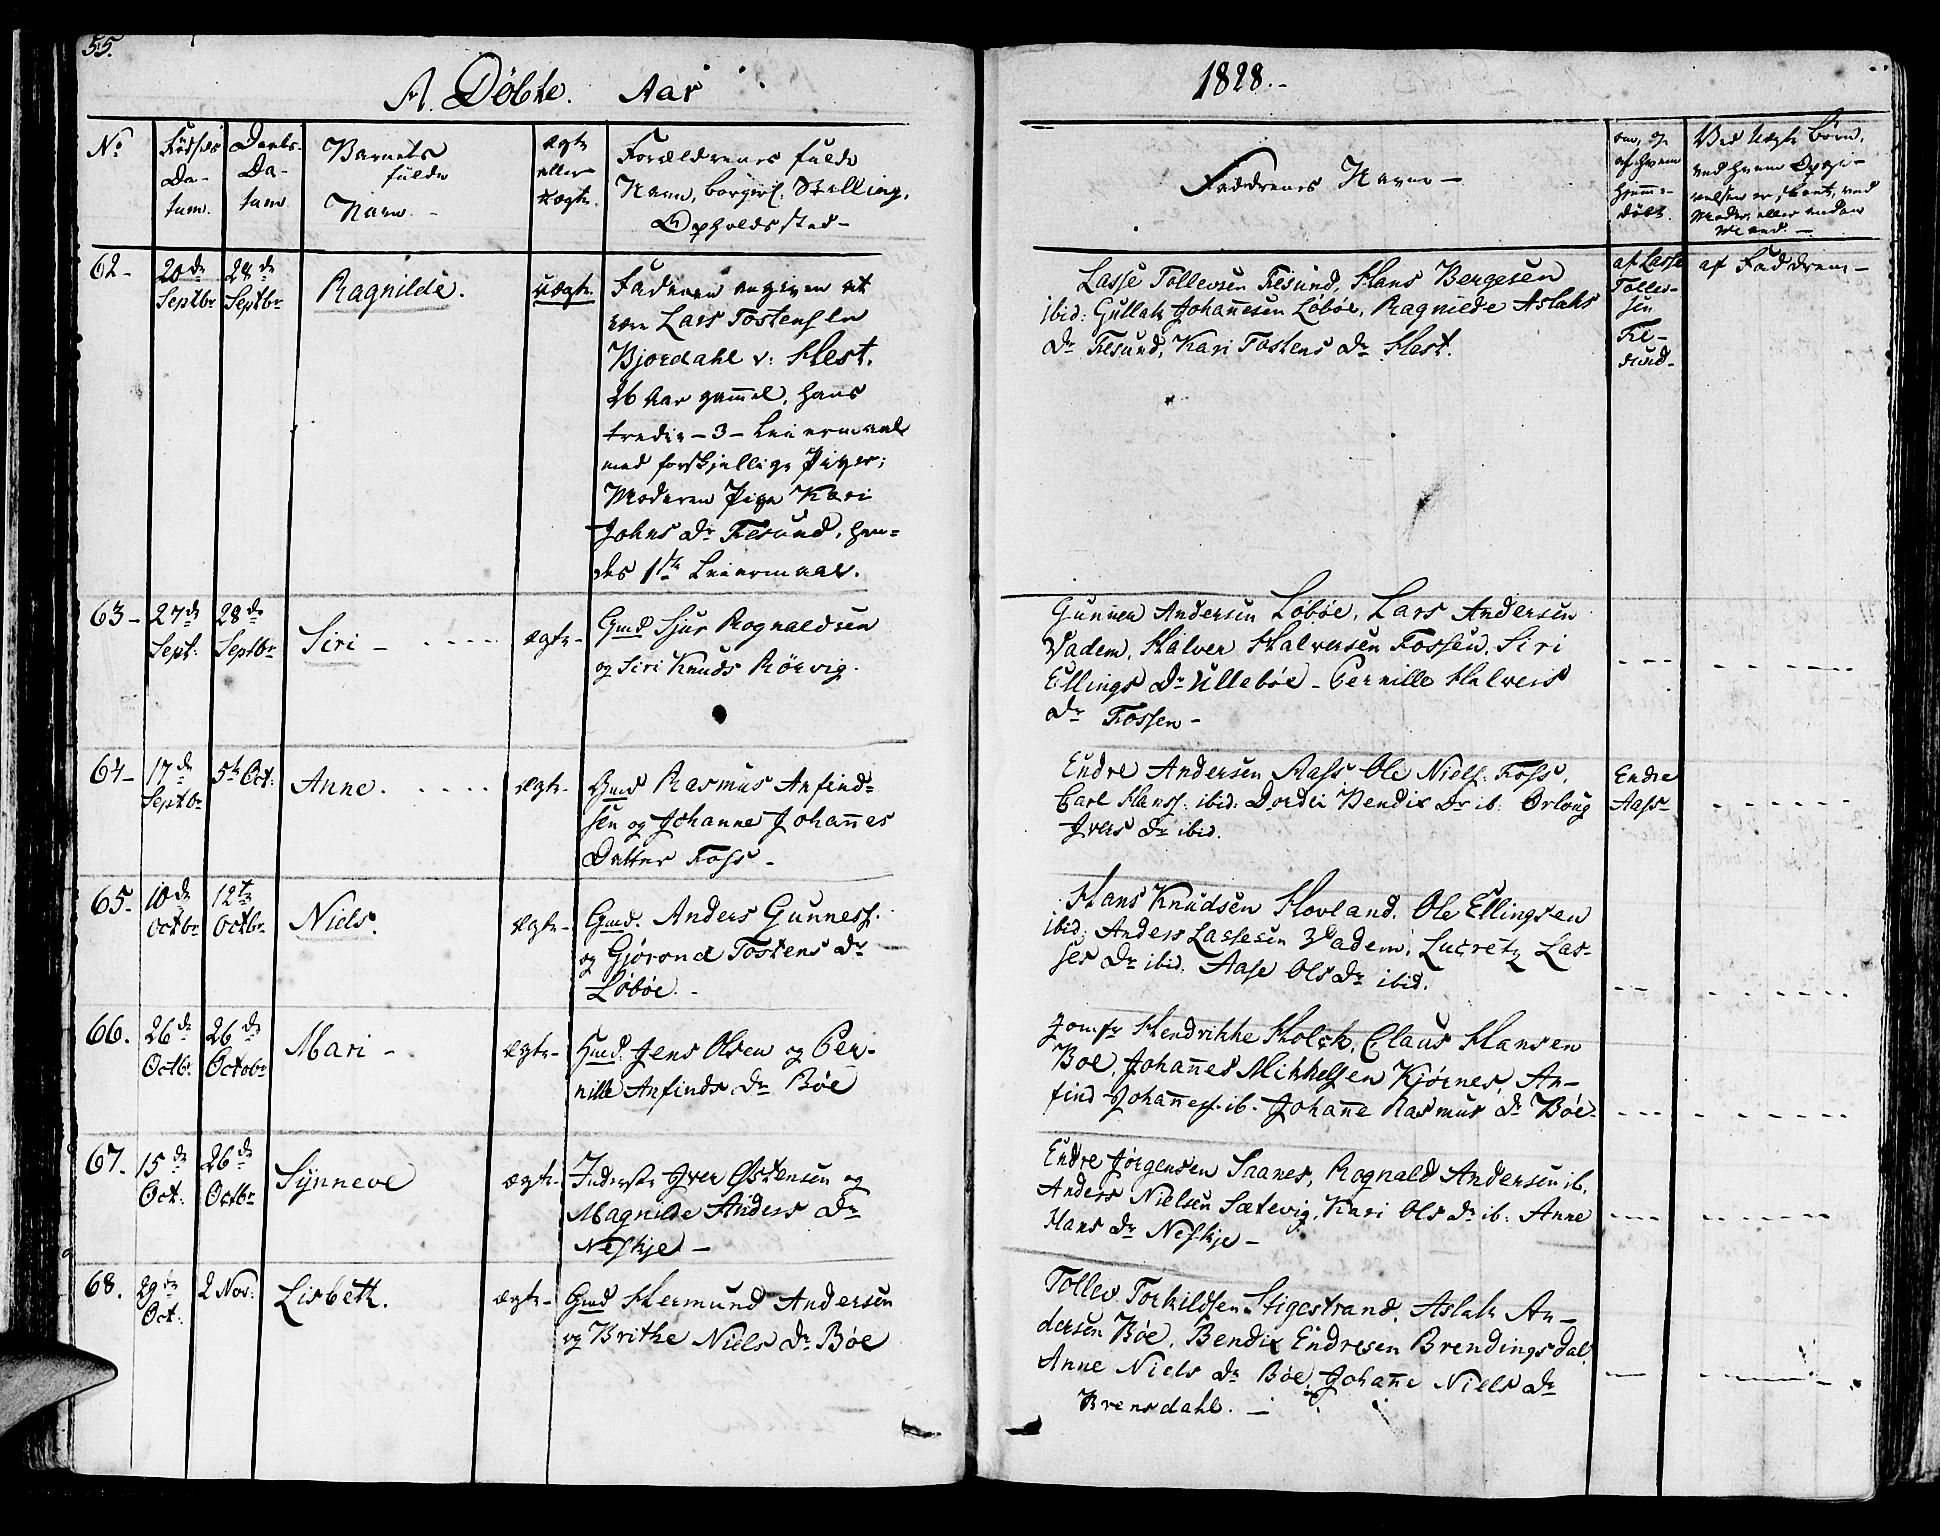 55.
A. Døbte. Aar
1828.-
No
Fødsels
Da-
tum.
Daabs-
Da-
tum
Barnets
fulde
Navn. -
ægte
eller
uægte.
Forældrenes fulde
Navn, borgerl: Stilling,
Opholdssted -
Faddrenes Navne -
om, og
af hvem
hjemme-
døbt.
Ved Uægte børn,
ved hvem Opgi-
velsen er skeet, ved
Moder, eller anden
62-
20de
Septbr
28de
Septbr
Ragnilde.
uægte.
Faderen angiven at
være Lars Tostensen
Bjordahl v: Hest.
26 Aar gammel, hans
tredie - 3 - Leiermaal
med forskjellige Piger;
Moderen Pige Kari
Johns Dr Fiesund, hen=
des 1ste Leiermaal.
Lasse Tollevsen Fiesund, Hans Bergesen
ibid: Gullak Johannesen Løbøe, Ragnilde Aslaks
Dr Fiesund, Kari Tostens Dr Hest.
af Lasse
Tollev-
sen
Fie-
sund-
af Faddrene-
63-
27de
Sept:
28de
Septbr
Siri -
ægte-
Gmd Sjur Rognaldsen
og Siri Knuds Rørvig.
Gunnen Andersen Løbøe, Lars Andersen
Vadem, Halver Halversen Fossen, Siri
Ellings Dr Ullebøe - Pernille Halvers
Dr Fossen -
64-
17de
Septbr
5te Oct:
Anne.
ægte-
Gmd Rasmus Anfind=
sen og Johanne Johannes
Datter Foss -
Endre Andersen Aass Ole Niels: Foss,
Carl Hans: ibid: Dordei Bendix Dr ib: Orloug
Ivers Dr ibid.
Endre
Aass-
65.
10de
Octbr
12te
Octbr
Niels.
ægte-
Gmd. Anders Gunness.
og Gjørond Tostens Dr
Løbøe. -
Hans Knudsen Hovland. Ole Ellingsen
ibid; Anders Lassesen Vadem; Lucretz Las-
ses Dr ibid. Aase Ols Dr ibid.
66.
26de
Octbr.
26de
Octobr
Mari -
ægte-
Hmd. Jens Olsen og Per-
nille Anfinds Dr Bøe
Jomfr Hendrikke Holck, Claus Hansen
Boe, Johannes Mikkelsen Kjørnes, An-
find Johannes. ib. Johanne Rasmus Dr Bøe.
67.
15de
Oct:
26de
Octbr
Synneve
ægte-
Inderste Iver Østensen og
Magnilde Anders Dr
Neskje -
Endre Jørgensen Saanes, Rognald Andersen ib.
Anders Nielsen Sætevig, Kari Ols Dr ib: Anne
Hans Dr Neskje -
68.
29de
Oct:
2 Nov:
Lisbeth.
ægte-
Gmd Hermund Andersen
og Brithe Niels Dr Bøe
Tollev Torkildsen Stigestrand, Aslak An-
dersen Bøe, Bendix Endresen Brendingsdal,
Anne Niels Dr Bøe, Johanne Niels Dr
Brensdahl. -